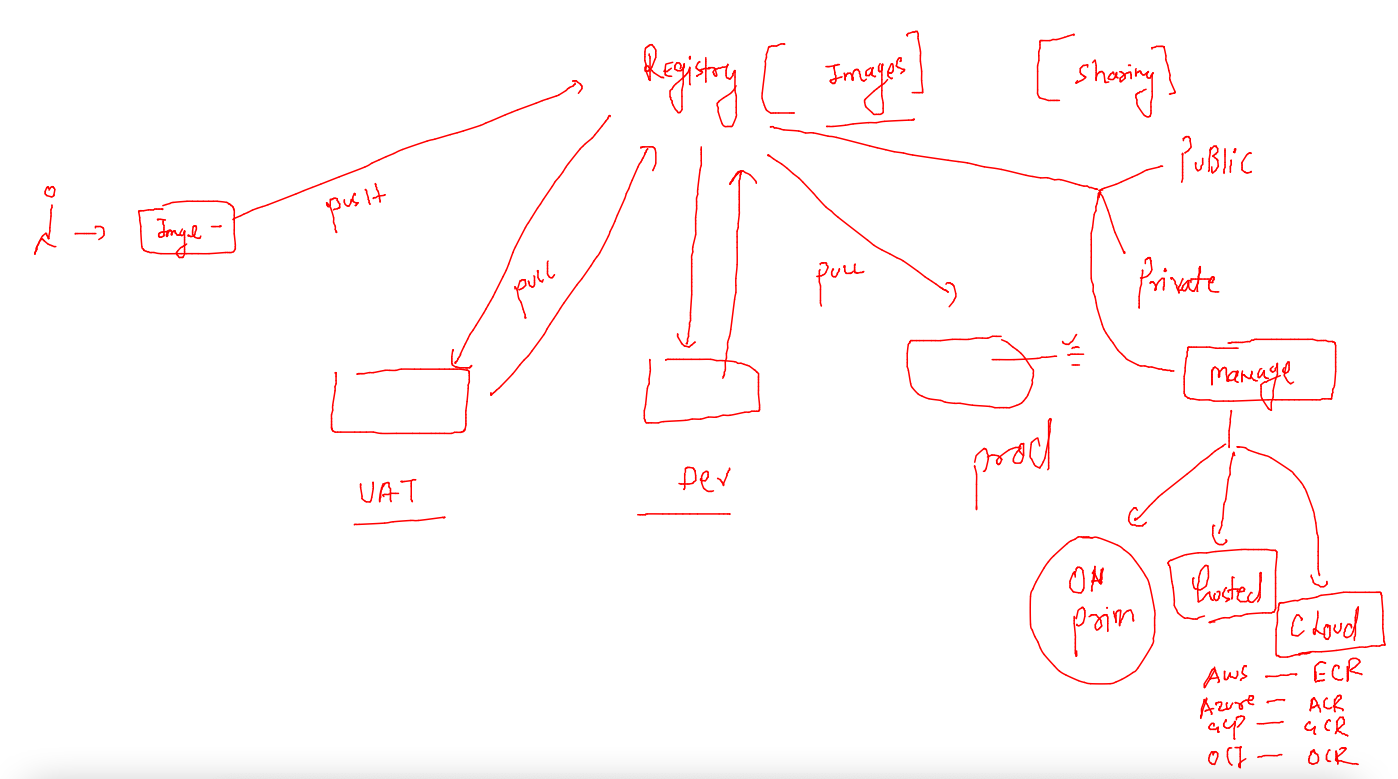 Registry [ Images ] [ Sharing ]
PUBLIC
push
Image -
pull
pull
Private
Manage
prod
UAT
Dev
ON
prim
hosted
Cloud
AWS — ECR
Azure — ACR
GCP — GCR
OCI — OCR